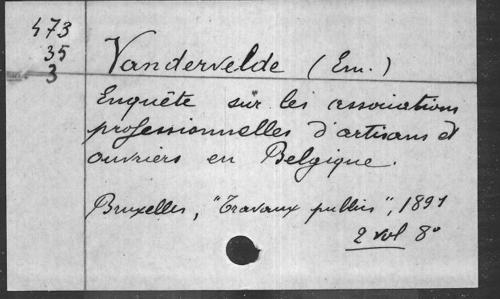 473
35
3
Vandervelde (Em.)
Enquête sur les associations
professionnelles d'artisans et
ouvriers en Belgique.
Bruxelles, "Travaux publics", 1891
2 vol 8°